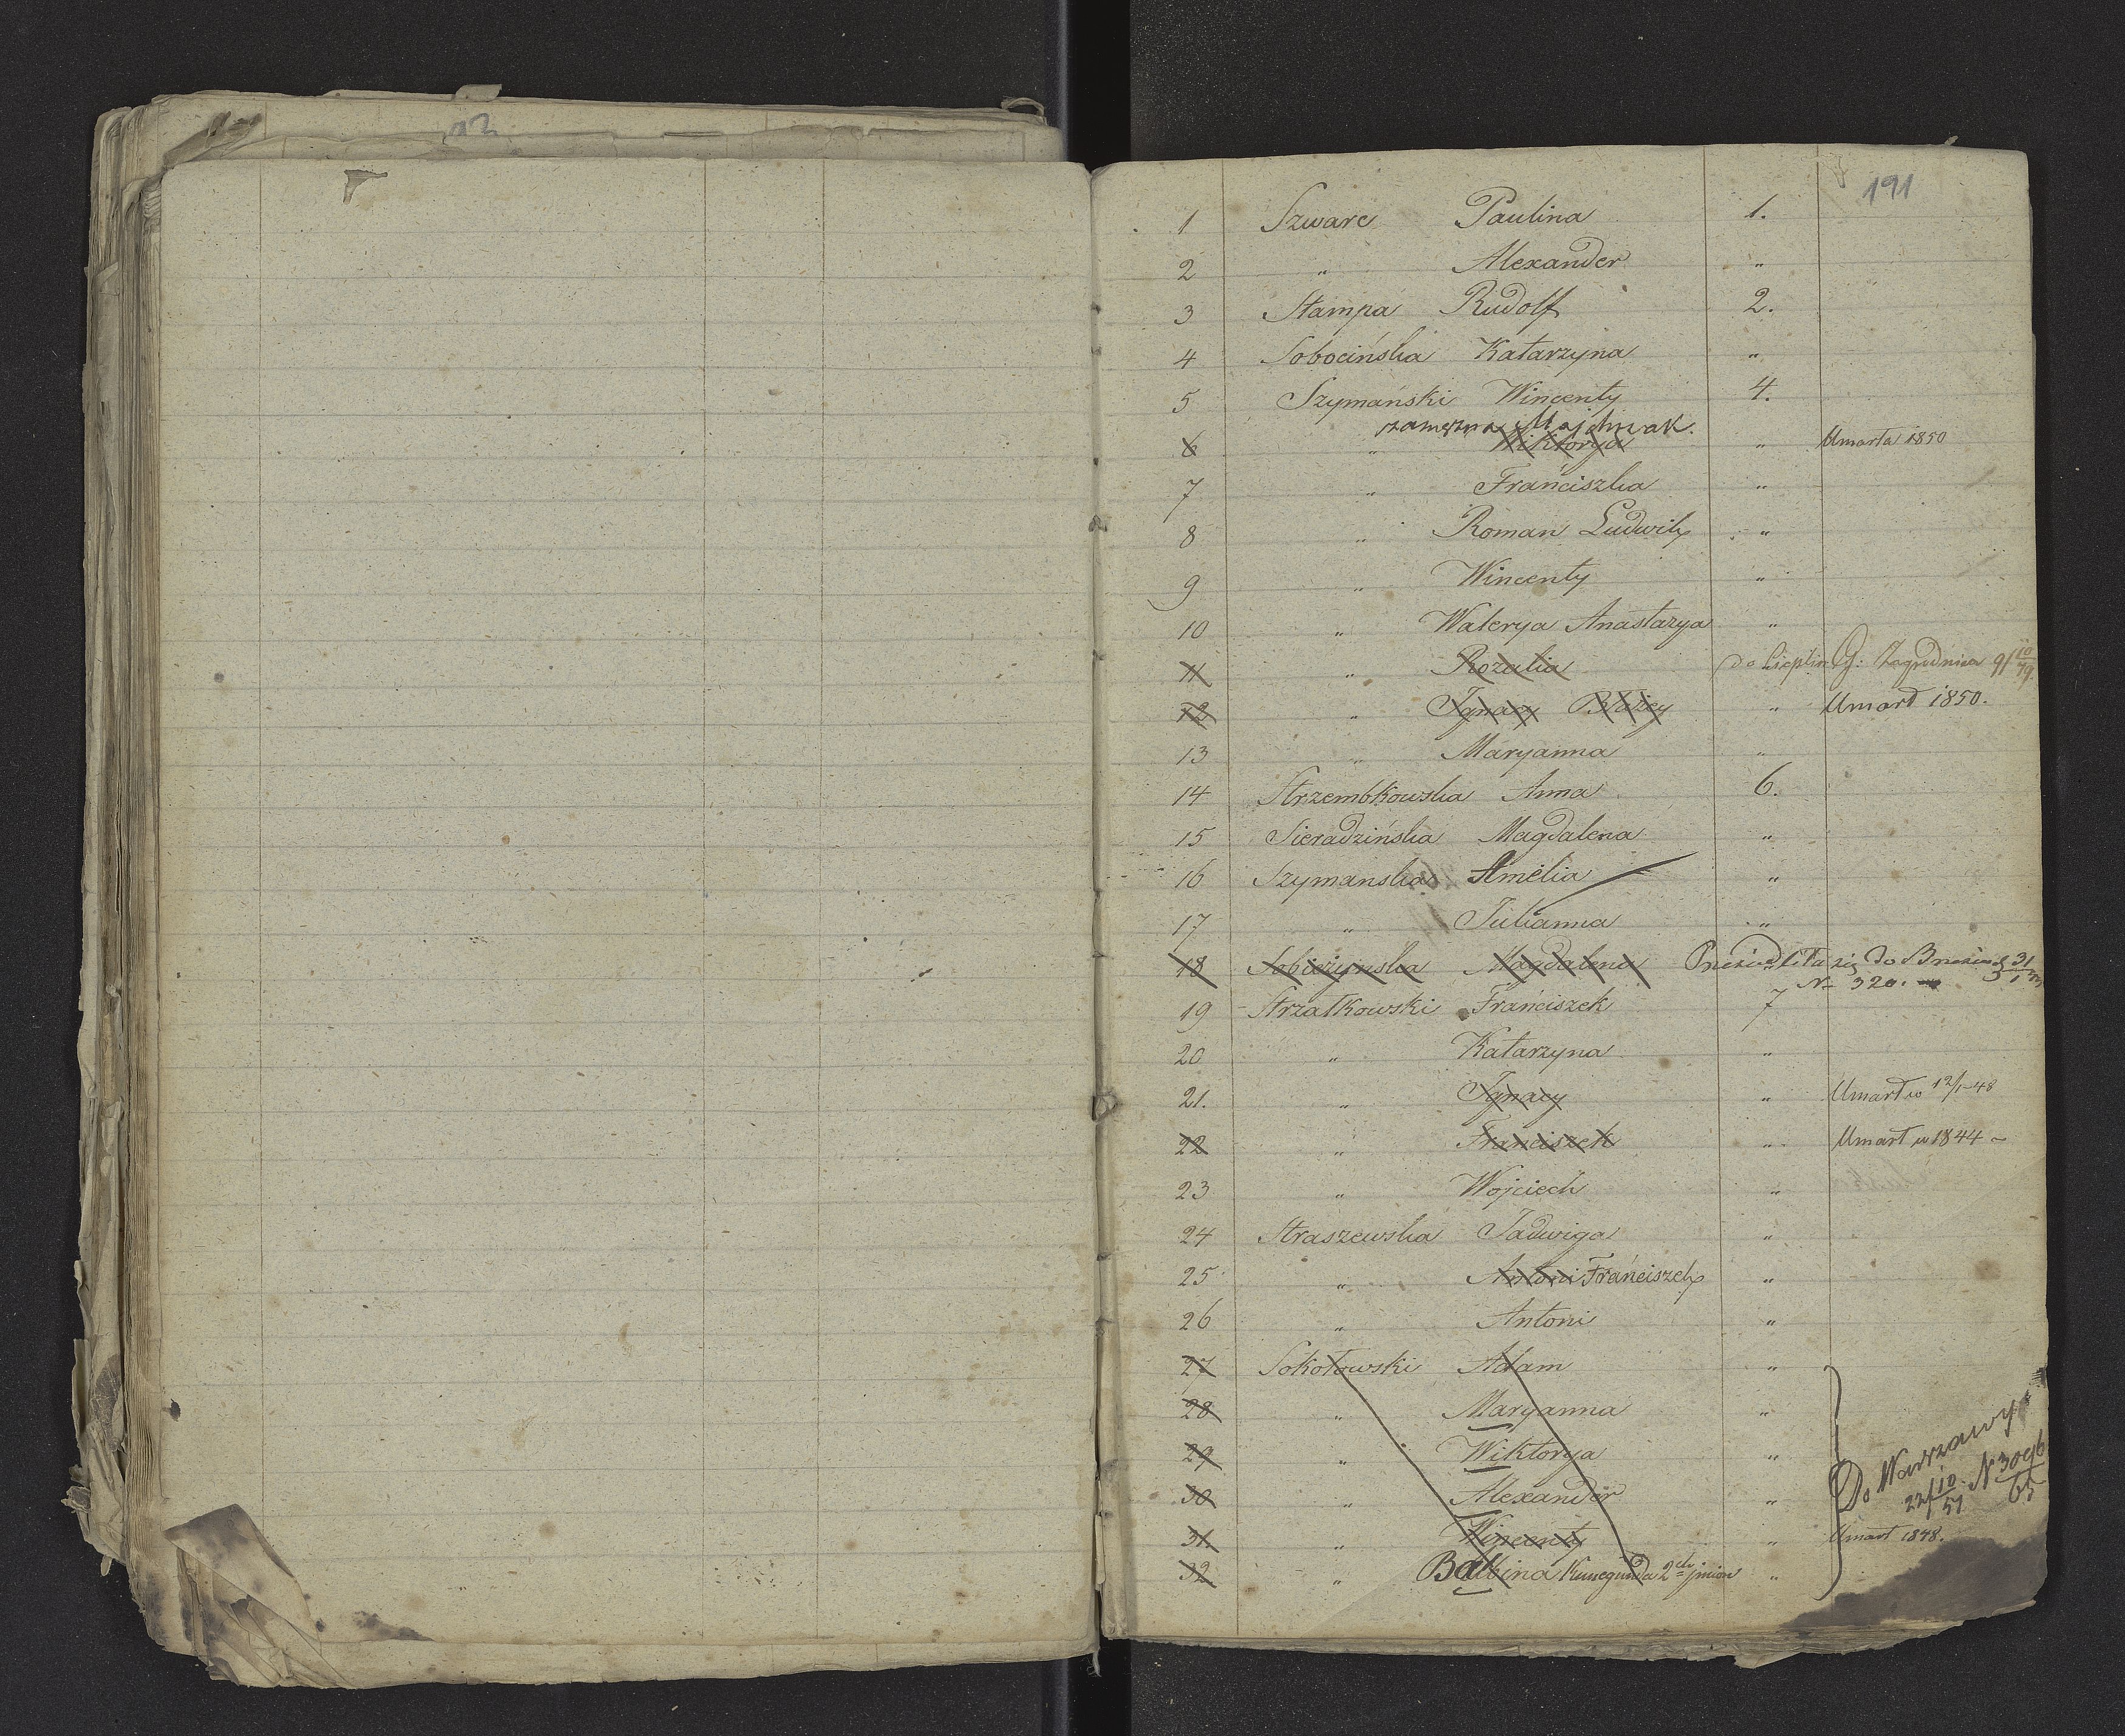 191
1 Szwarc Paulina 1.
2 " Alexander "
3 Stampa Rudolf 2.
4 Sobocińska Katarzyna "
5 Szymański Wincenty 4.
zamężna Majchrzak.
6 " Wiktorya " Umarła 1850
7 " Franciszka "
8 " Roman Ludwik "
9 " Wincenty "
10 " Walerya Anastazya "
11 " Rozalia do G: Zagrodnica 9/10 79.
12 " Ignacy Błażey " Umarł 1850.
13 " Maryanna "
14 Strzembkowska Anna 6.
15 Sieradzińska Magdalena "
16 Szymanska Amelia "
17 " Julianna "
18 Magdalena się do
N 320.
19 Strzałkowski Franciszek 7
20 " Katarzyna "
21. " Ignacy " Umarł w 12/1-48
22 " Franciszek " Umarł w 1844 -
23 " Wojciech "
24 Straszewska Jadwiga "
25 " Antoni Franciszek "
26 " Antoni "
27 Sokołowski Adam "
28 " Maryanna "
29 " Wiktorya "
30 " Alexander "
Do Warszawy
22/10 51 N 3096
65
31. " Wincenty " Umarł 1848.
32 " Balbina Kunegunda 2ch imion "